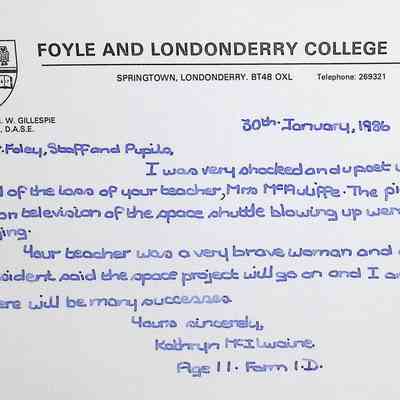 FOYLE AND LONDONDERRY COLLEGE
SPRINGTOWN, LONDONDERRY. BT48 OXL Telephone: 269321
W. GILLESPIE
D.A.S.E.
30th. January, 1986
Foley, Staff and Pupils,
I was very shocked and upset
of the loss of your teacher, Mrs McAuliffe. The
on television of the space shuttle blowing up
Your teacher was a very brave woman and
said the space project will go on and I
will be many successes
Yours sincerely,
Kathryn McIlwaine.
Age 11. Form 1.D.